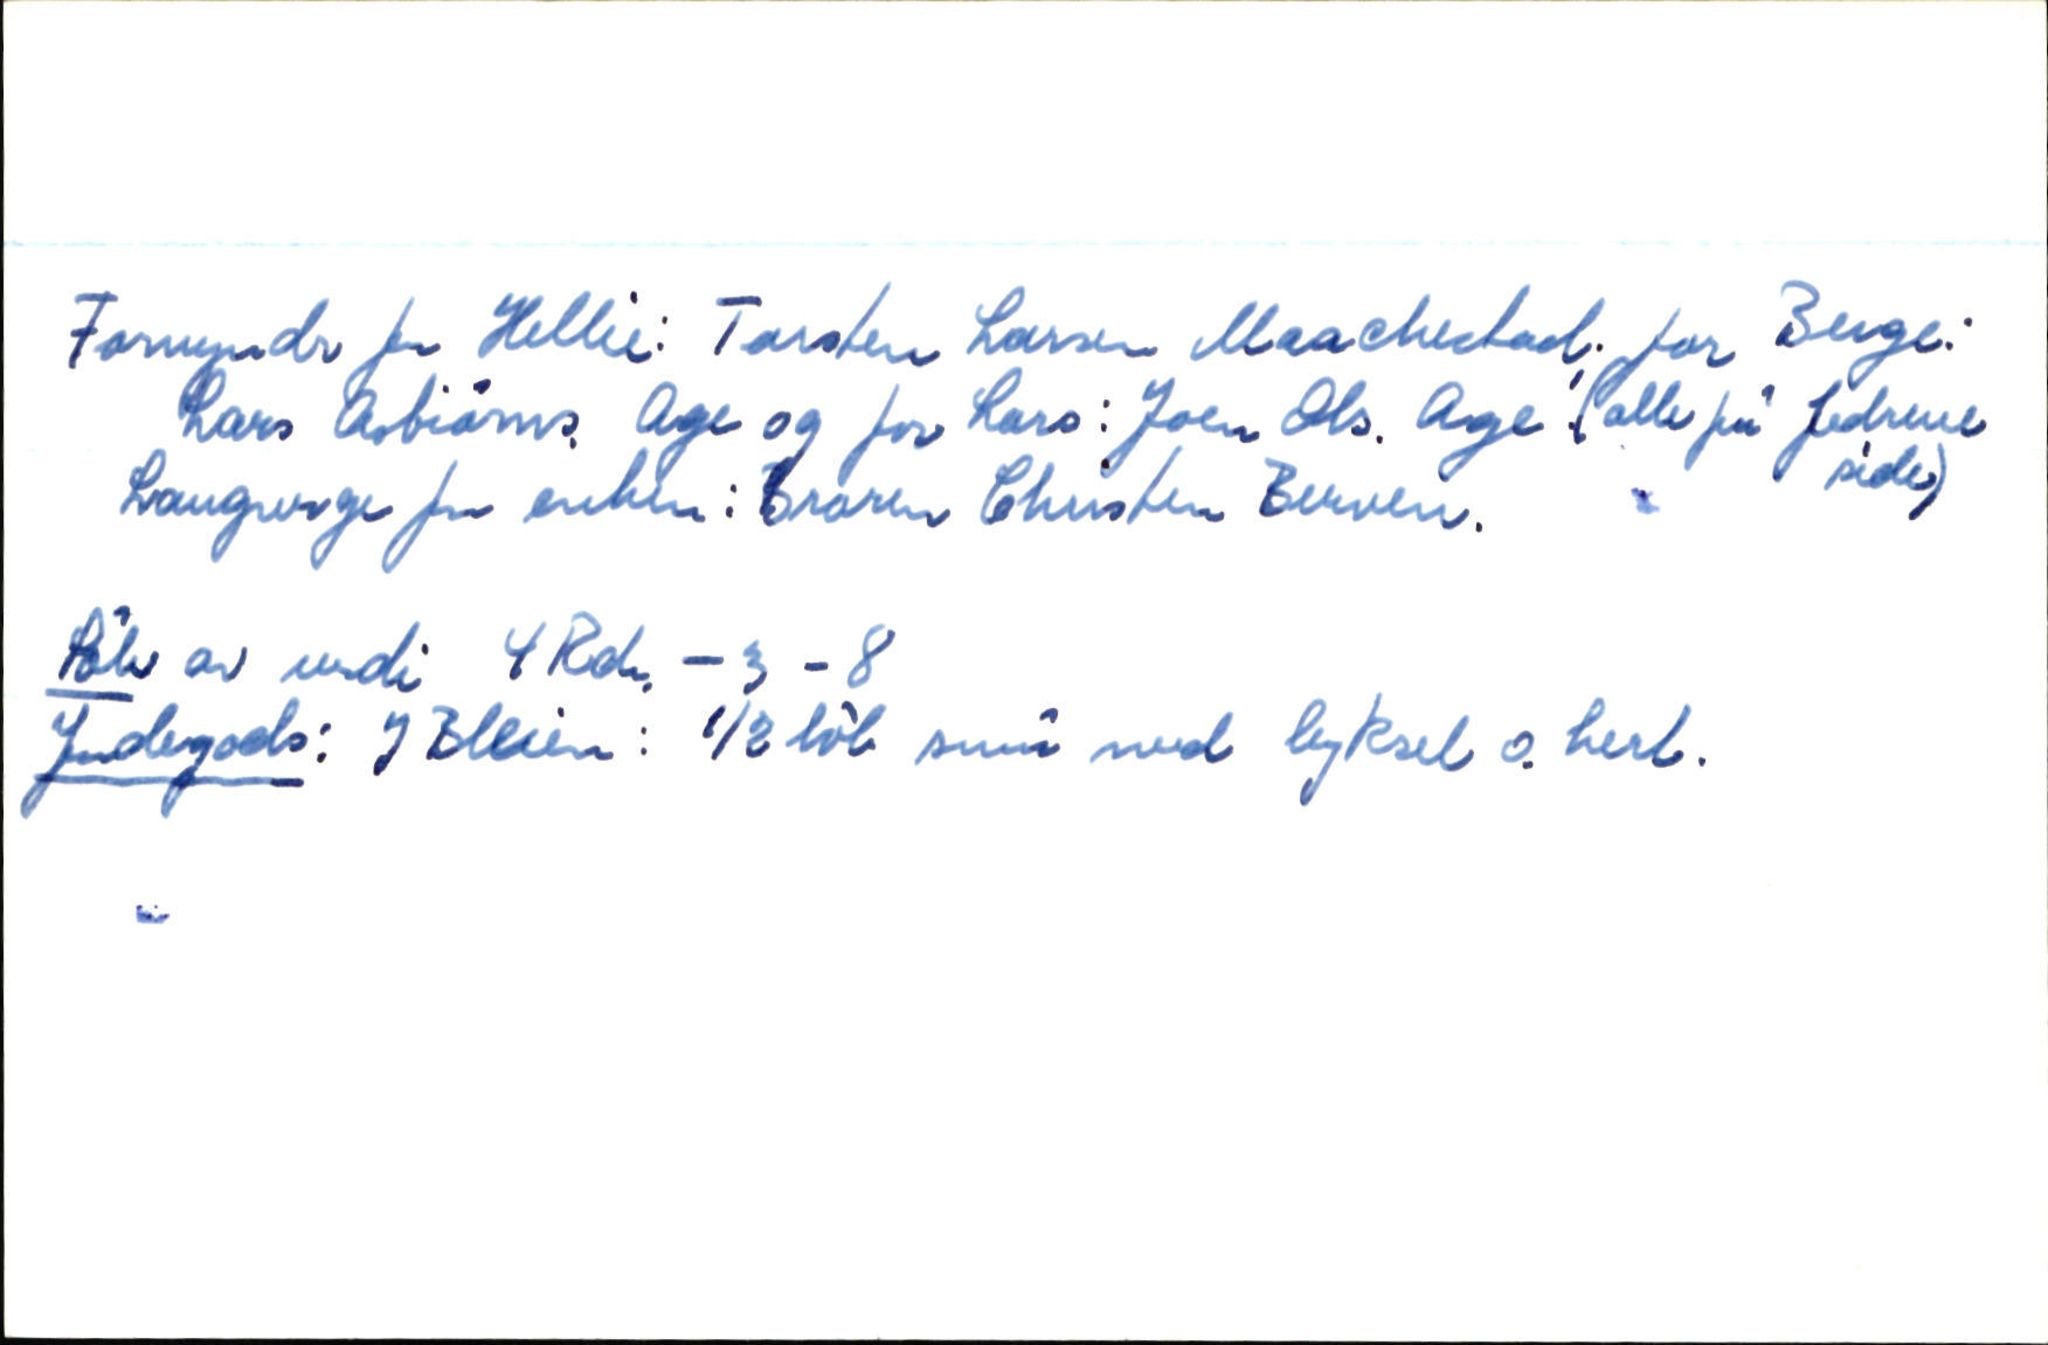 Formyndr for Hellie: Torsten Larsen Maachestad. for Berge:
Lars Asbiörns. Age og for Lars: Joen Ols. Age. (alle på fedrene
side)
Laugverge for enken: Broren Christen Berven.
Sölv av verdi 4 Rdr. - 3 - 8
Jordegods: J Bleien: 1/2 löb smör med byksel o. herl.